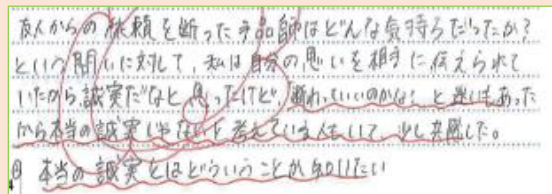 友人からの依頼を断った手品師はどんな気持ちだったか?
という問いに対して、私は自分の思いを相手に伝えられて
いたから誠実だなと思ったけど、断わっていいのかな?と迷いもあった
から本当の誠実じゃないと考えている人もいて、少し共感した。
本当の誠実とはどういうことか知りたい